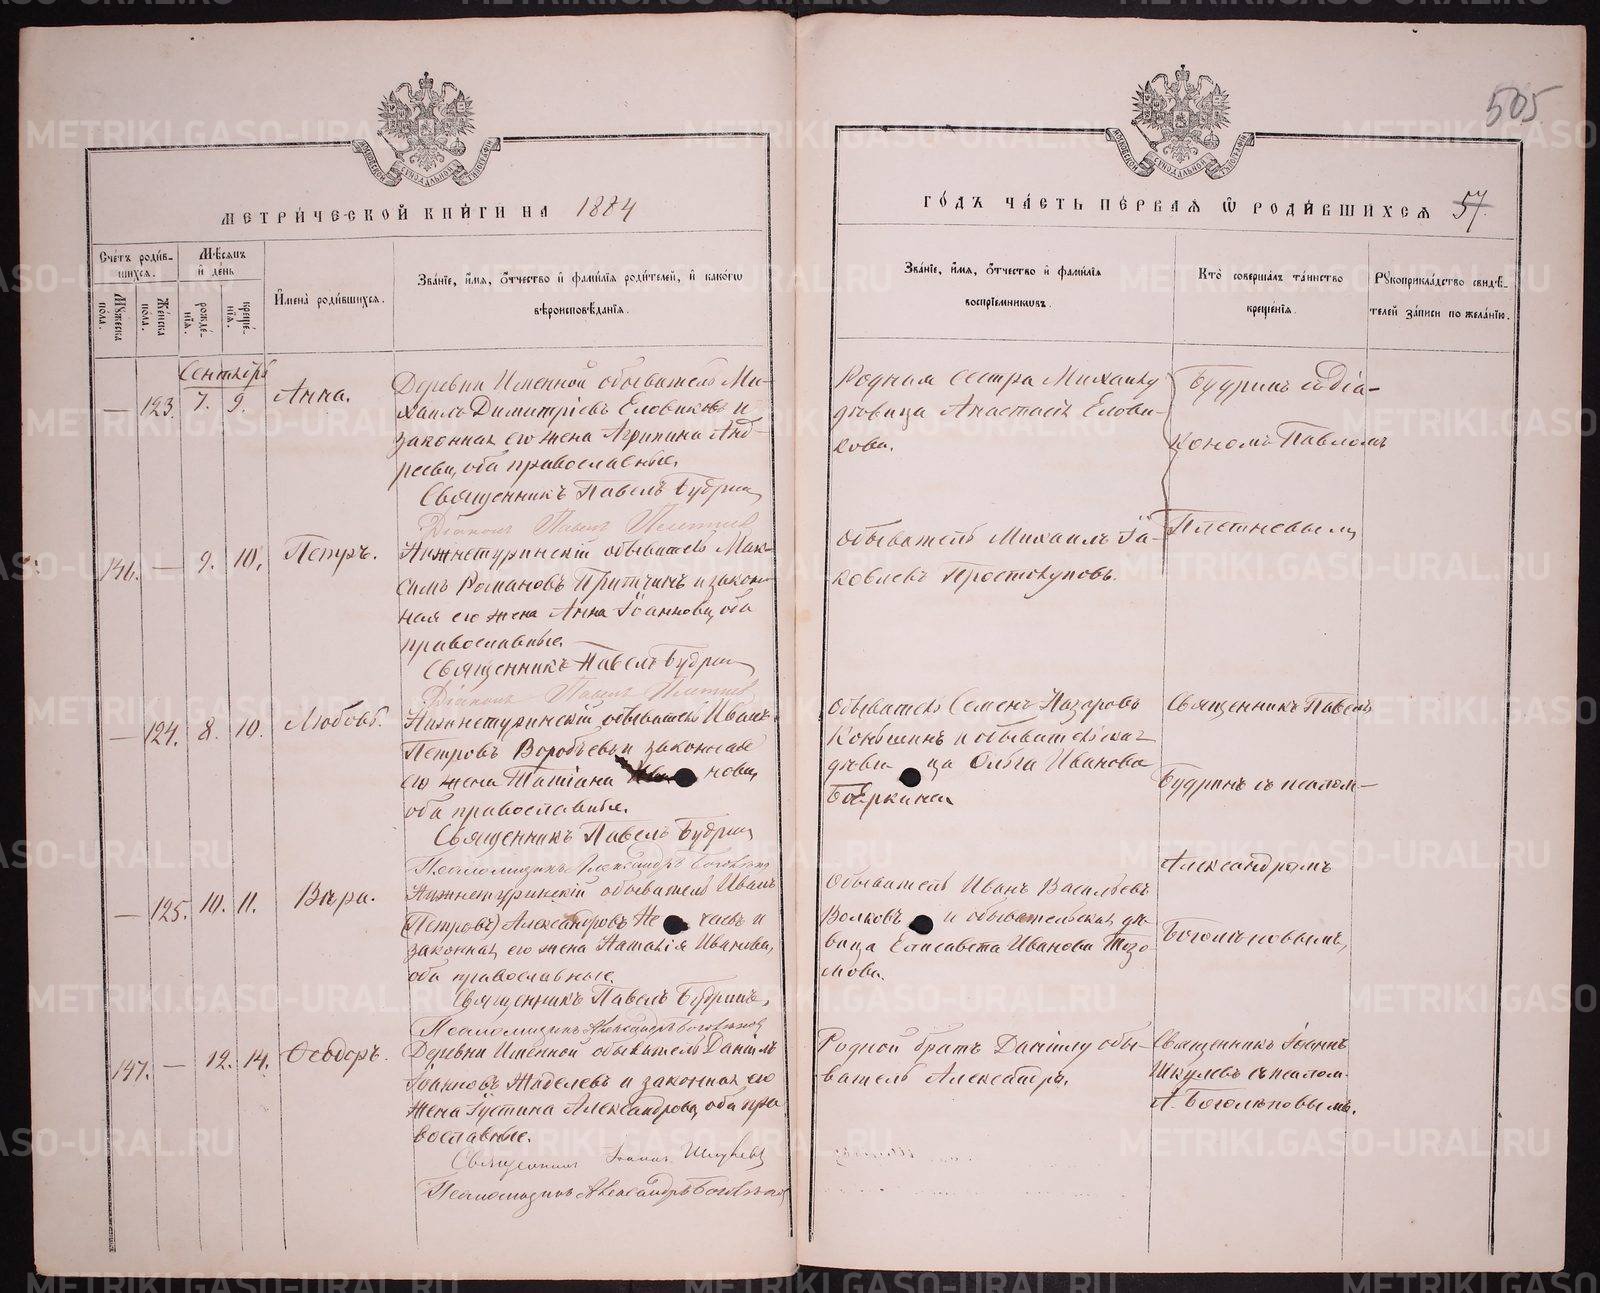 505.
МЕТРИ́ЧЕСКОЙ КНИ́ГИ НА 1884
ГО́ДЪ ЧА́СТЬ ПЕ́РВАЯ Ѿ РОДИ́ВШИХСЯ 57.
Сче́тъ роди́в-
шихся.
Мꙋ́жеска пола.
Же́нска пола.
Мѣ́сяцъ
и де́нь
рожде́-
нїя.
креще́-
нїя.
И́мена̀ роди́вшихся.
Зва́нїе, и́мя, о́тчество и фами́лїя роди́телей, и како́гѡ
вѣроисповѣ́данїя.
Зва́нїе, и́мя, о́тчество и фами́лїя
воспрїе́мниковъ.
Кто̀ соверша́лъ та́инство
креще́нїя.
Рꙋкоприкла́дство свидѣ́-
телей за́писи по жела́нїю.
Сентябрь
— 123. 7. 9. Анна.
Деревни Именной обыватель Ми-
хаилъ Димитріевъ Еловиковъ и
законная его жена Агрипина Анд-
реева, оба православные.
Священникъ Павелъ Будринъ
Діаконъ Павелъ Плетневъ
Родная сестра Михаилу
дѣвица Анастасія Елови-
кова.
Будринъ съ Діа-
кономъ Павломъ
Плетневымъ
146. — 9. 10. Петръ.
Нижнетуринскій обыватель Мак-
симъ Романовъ Притчинъ и закон-
ная его жена Анна Іоаннова, оба
православные.
Священникъ Павелъ Будринъ
Діаконъ Павелъ Плетневъ
Обыватель Михаилъ Іа-
ковлевъ Простокуповъ.
— 124. 8. 10. Любовь.
Нижнетуринскій обыватель Иванъ
Петровъ Воробьевъ и законная
его жена Татіана нова,
оба православные.
Священникъ Павелъ Будринъ
Псаломщикъ Александръ Боголѣповъ
Обыватель Семенъ Назаровъ
Коньшинъ и обывательская
дѣви ца Ольга Иванова
Священникъ Павелъ
Будринъ съ псалом-
Александромъ
Боголѣповымъ,
— 125. 10. 11. Вѣра.
Нижнетуринскій обыватель Иванъ
(Петровъ) Александровъ Не чаевъ и
законная его жена Наталія Иванова,
оба православные.
Священникъ Павелъ Будринъ,
Псаломщикъ Александръ Боголѣповъ
Обыватель Иванъ Васильевъ
Волковъ и обывательская дѣ-
вица Елисавета Иванова
147. — 12. 14. Ѳеодоръ.
Деревни Именной обыватель Даніилъ
Іоанновъ Жаделевъ и законная его
жена Іустина Александрова, оба пра
вославные.
Священникъ Іоаннъ Шкулевъ
Псаломщикъ Александръ Боголѣповъ
Родной братъ Даніилу обы-
ватель Александръ.
Священникъ Іоаннъ
Шкулевъ съ псалом.
А. Боголѣповымъ.
METRIKI.GASO-URAL.RU